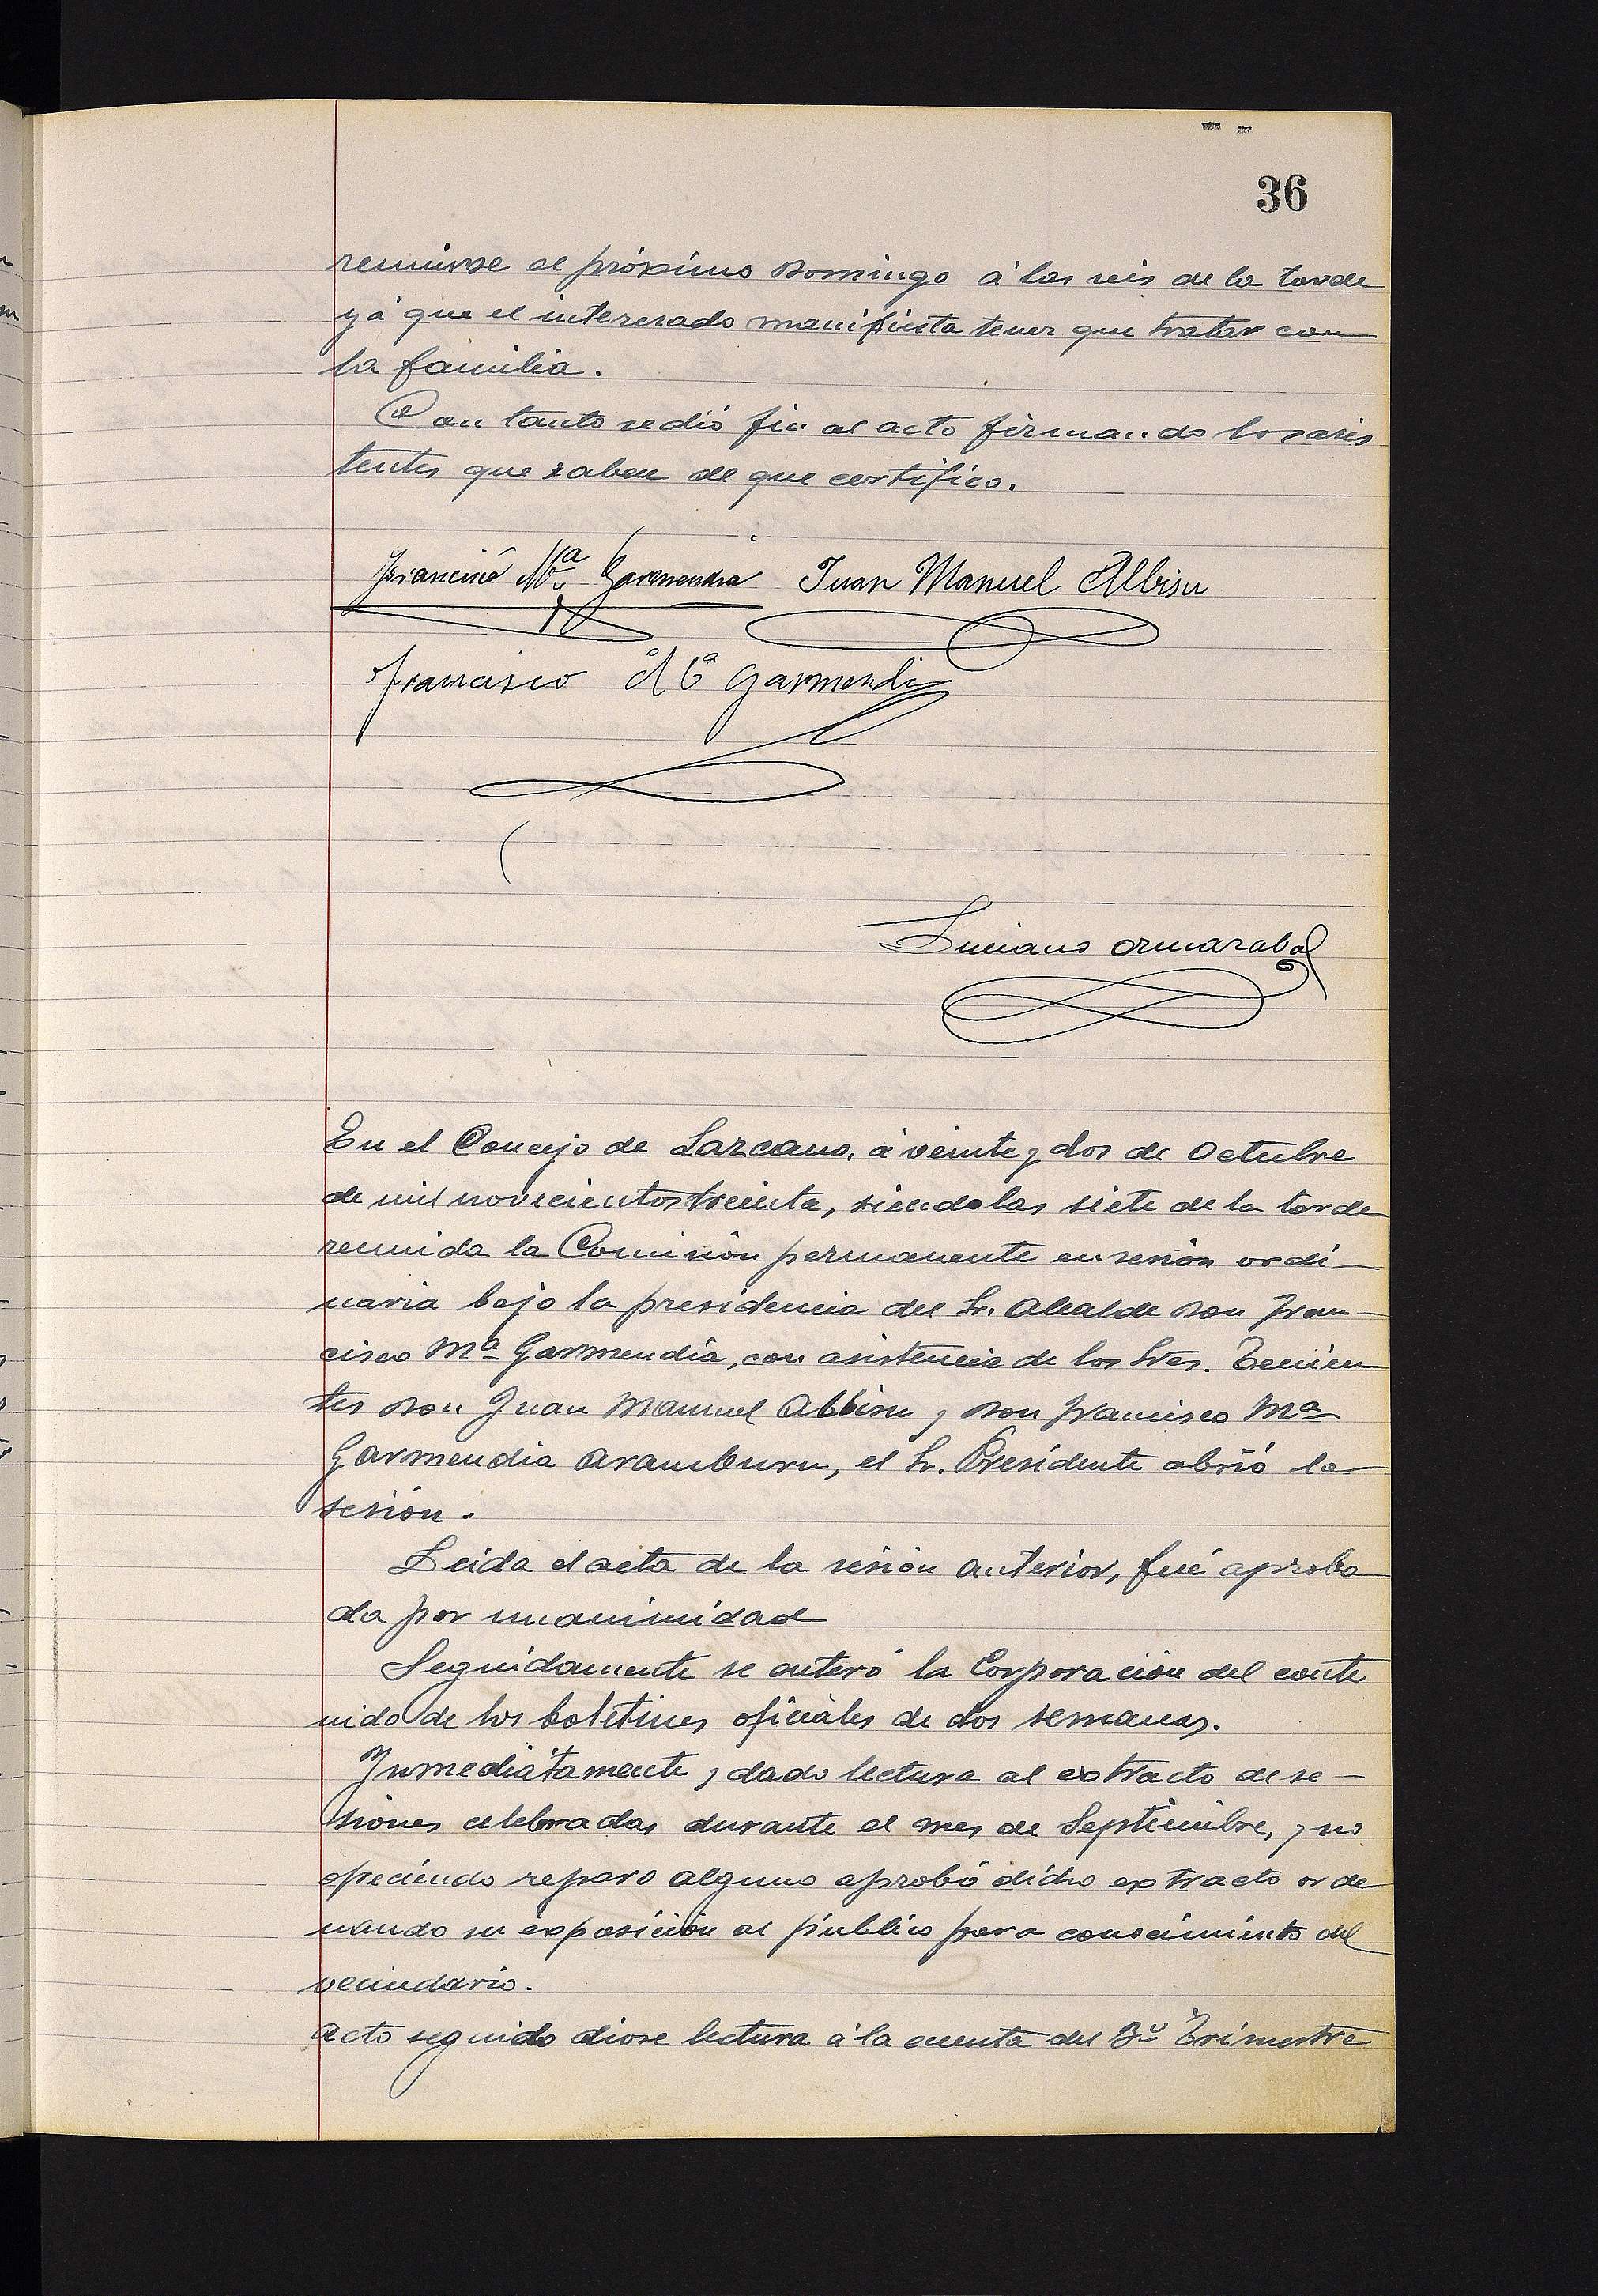 36
reunirse el próximo Domingo á las seis de la tarde
yá que el interesado manifiesta tener que tratar con
la familia.
Con tanto se dió fin al acto firmando los asis
tentes que saben de que certifico.
Francisco Mª Garmendia Juan Manuel Albisu
Francisco Mª Garmendia
Luciano Ormazabal
En el Concejo de Lazcano, á veinte y dos de Octubre
de mil novecientos treinta, siendo las siete de la tarde
reunida la Comisión permanente en sesión ordi-
naria bajo la presidencia del Sr. Alcalde Don Fran-
cisco Mª Garmendia, con asistencia de los Sres. Tenien
tes Don Juan Manuel Albisu y Don Francisco Mª
Garmendia Aramburu, el Sr. Presidente abrió la
sesión.
Leida el acta de la sesión anterior, fué aproba
da por unanimidad
Seguidamente se enteró la Corporación del conte
nido de los boletines oficiales de dos semanas.
Inmediatamente y dado lectura al extracto de se-
siones celebradas durante el mes de Septiembre, y no
ofreciendo reparo alguno aprobó dicho extracto orde
nando su exposición al público para conocimiento del
vecindario.
Acto seguido diose lectura á la cuenta del 3º Trimestre